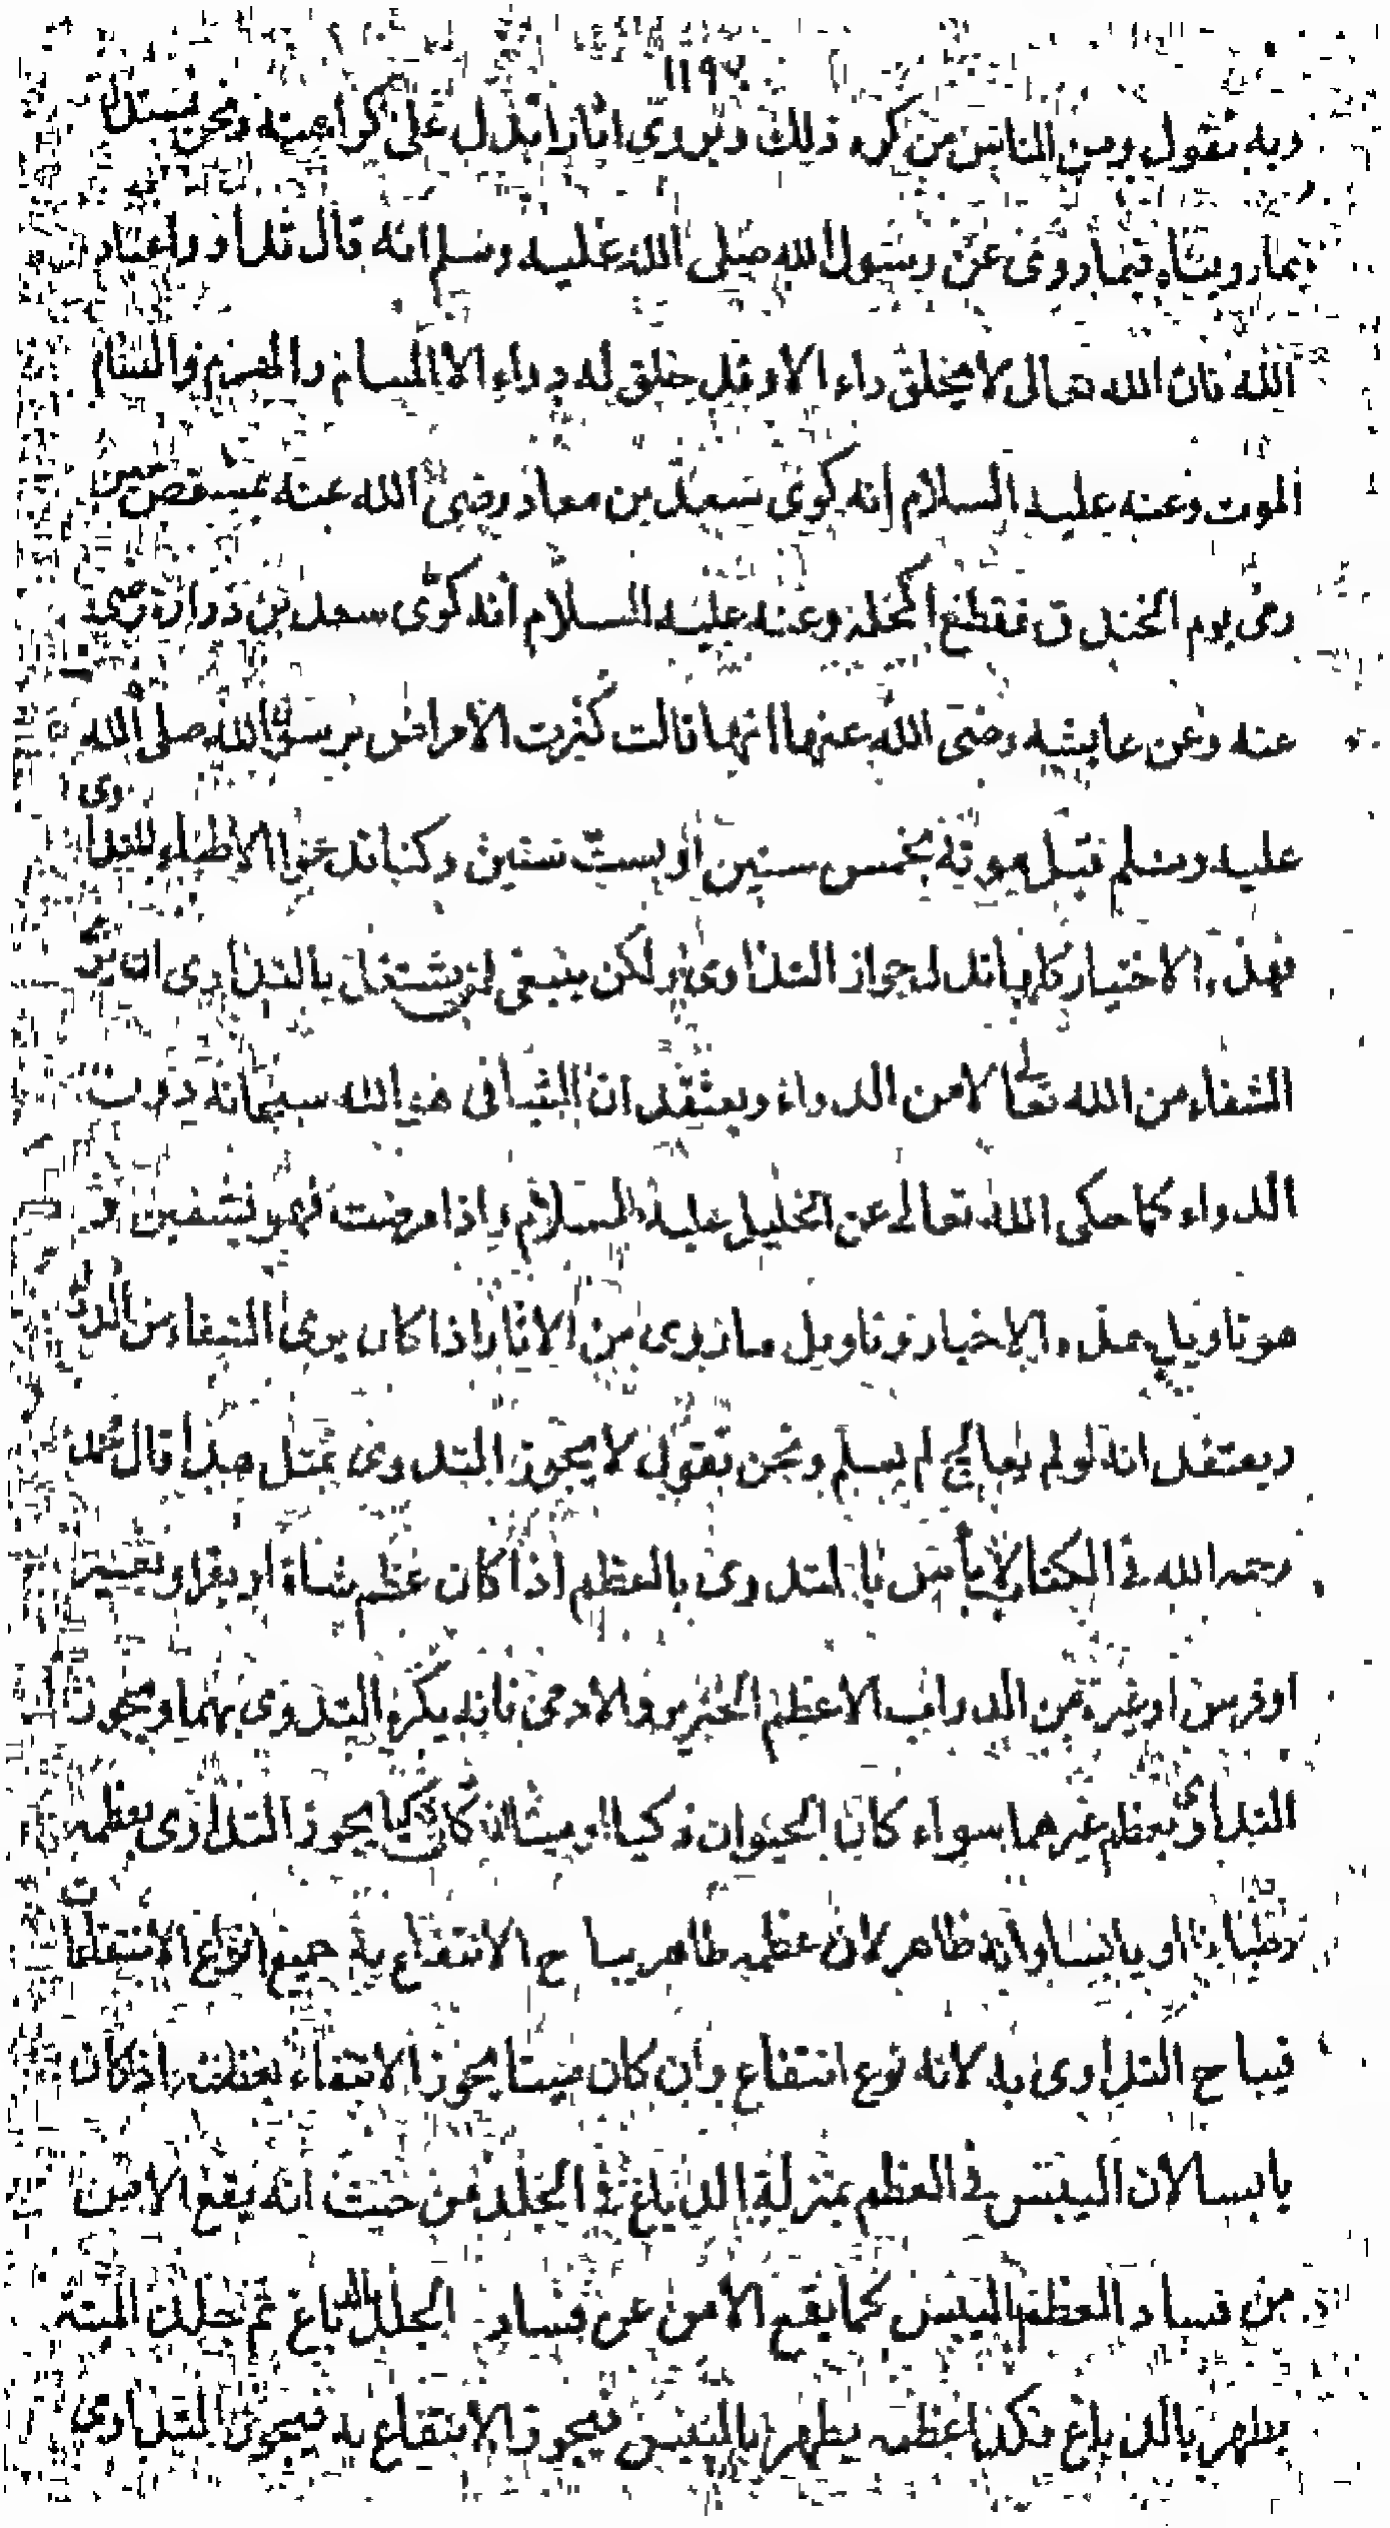 ١١٩٧
وبه نقول ومن الناس من كره ذلك ويروي اثارا تدل على كراهيته ونحن نستدل
بما روينا فيما روى عن رسول الله صلى الله عليه وسلم انه قال تداووا عباد
الله فان الله تعالى لا يخلق داء الا وقد خلق له دواء الا السام والهرم والسام
الموت وعنه عليه السلام انه كوى سعد بن معاذ رضي الله عنه بمشقص حين
رمى يوم الخندق فقطع اكحله وعنه عليه السلام انه كوى سعد بن زرارة رضى
عنه وعن عايشه رضى الله عنها انها قالت كثرت الامراض برسول الله صلى الله
عليه وسلم قبل موته بخمس سنين أو بست سنين وكنا ندعوا الاطباء للتداوى
فهذه الاختيار كلها تدل لجواز التداوى ولكن ينبغى لمن يشتغل بالتداوى ان يرى
الشفاء من الله تعالى لا من الدواء ويعتقد ان الشافى هو الله سبحانه دون
الدواء كما حكى الله تعالى عن الخليل عليه السلام واذا مرضت فهو يشفين و
هو تاويل هذه الاخبار وتاويل ما روى من الاثار اذا كان يرى الشفاء من الدوا
ويعتقد انه لو لم يعالج لم يسلم ونحن نقول لا يجوز التدوى بمثل هذا قال محمد
رحمه الله فى الكتاب لا بأس با التدوى بالعظم اذا كان عظم شاة او بقر او بعير
او فرس او غيرة من الدواب الا عظم الخنزير والادمى فانه يكره التدوى بهما ويجوز
التداوى بعظم غيرهما سواء كان الحيوان ذكيا او ميتا ان كان ذكيا يجوز التداوى بعظمه
رطبا او يابسا وانه ظاهر لان عظمه طاهر يباح الانتفاع به جميع انواع الانتفاعات
فيباح التداوى به لانه نوع انتفاع وان كان ميتا يجوز الانتفاء بعظمه اذا كان
يابسا لان اليبس فى العظم بمنزلة الدباغ فى الجلد من حيث انه يقع الامن
من فساد العظم باليبس كما يقع الامن عن فساد الجلد بالدباغ ثم جلد الميتة
يطهر بالدباغ فكذا عظمه يطهر باليبس فيجوز الانتفاع به فيجوز التداوى